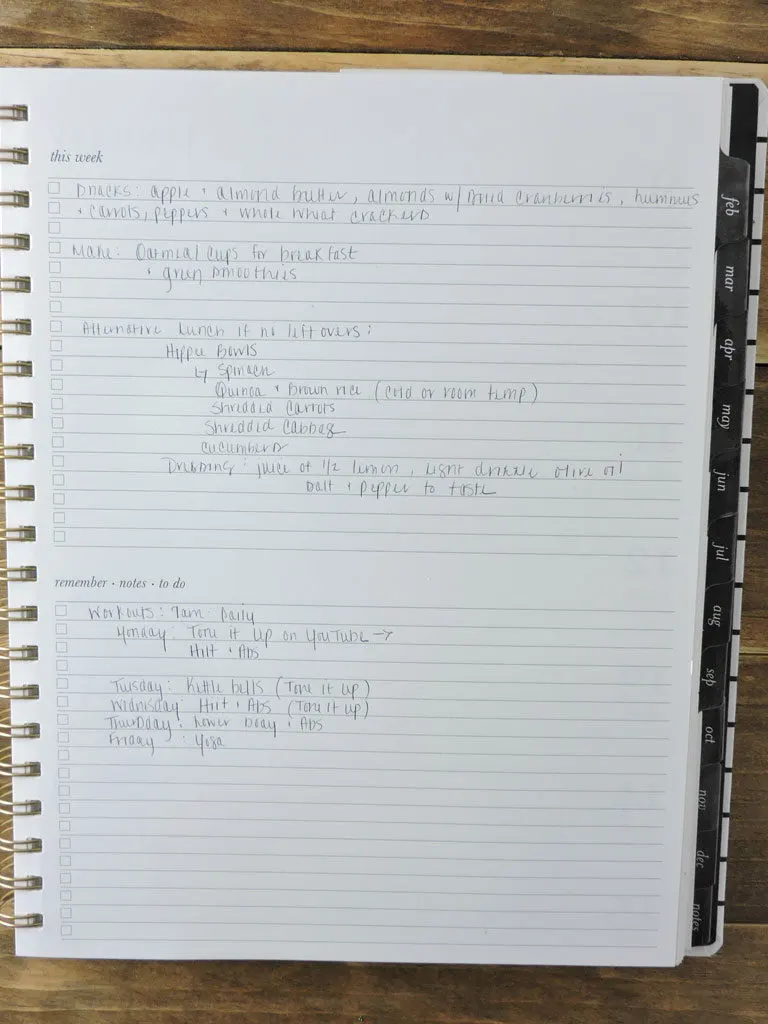 this week
Snacks: apple + almond butter, almonds w/ dried cranberries, hummus
+ carrots, peppers + whole wheat crackers
Make: Oatmeal cups for breakfast
+ green smoothies
Alternative Lunch if no leftovers:
Hippee Bowls
↳ Spinach
Quinoa + Brown rice (cold or room temp)
Shredded Carrots
Shredded Cabbage
cucumbers
Dressing: juice of 1/2 lemon, light drizzle olive oil
salt + pepper to taste
remember · notes · to do
Workouts: 7am Daily
Monday: Tone it up on YouTube →
Hiit + Abs
Tuesday: Kettle bells (Tone it up)
Wednesday: Hiit + Abs (Tone it up)
Thursday: Lower Body + Abs
Friday: Yoga
feb
mar
apr
may
jun
jul
aug
sep
oct
nov
dec
notes